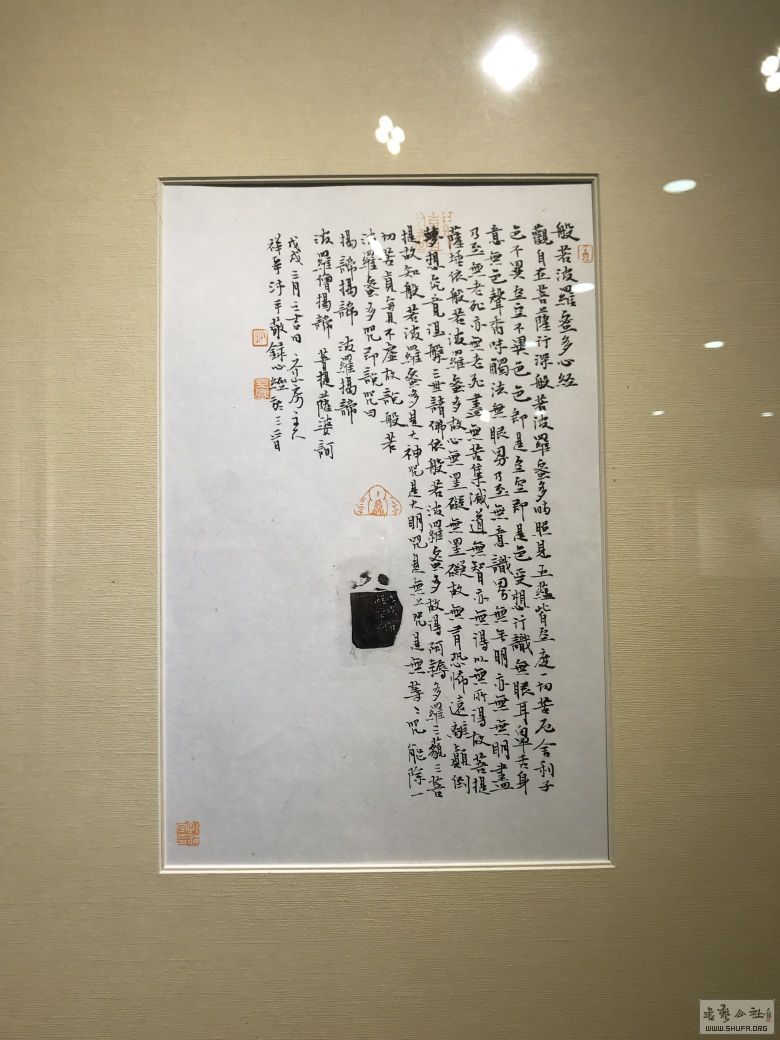 般若波羅蜜多心经
觀自在菩薩行深般若波羅蜜多時照見五蘊皆空度一切苦厄舍利子
色不異空空不異色色即是空空即是色受想行識無眼耳鼻舌身
意無色聲香味觸法無眼界乃至無意識界無無明亦無無明盡
乃至無老死亦無老死盡無苦集滅道無智亦無得以無所得故菩提
薩埵依般若波羅蜜多故心無罣礙無罣礙故無有恐怖遠離顛倒
夢想究竟涅槃三世諸佛依般若波羅蜜多故得阿耨多羅三藐三菩
提故知般若波羅蜜多是大神咒是大明咒是無上咒是無等〻咒能除一
切苦真實不虛故說般若
波羅蜜多咒即說咒曰
揭諦揭諦 波羅揭諦
波羅僧揭諦 菩提薩婆訶
戊戌三月 房主人
沐手敬録心經
WWW.SHUFA.ORG